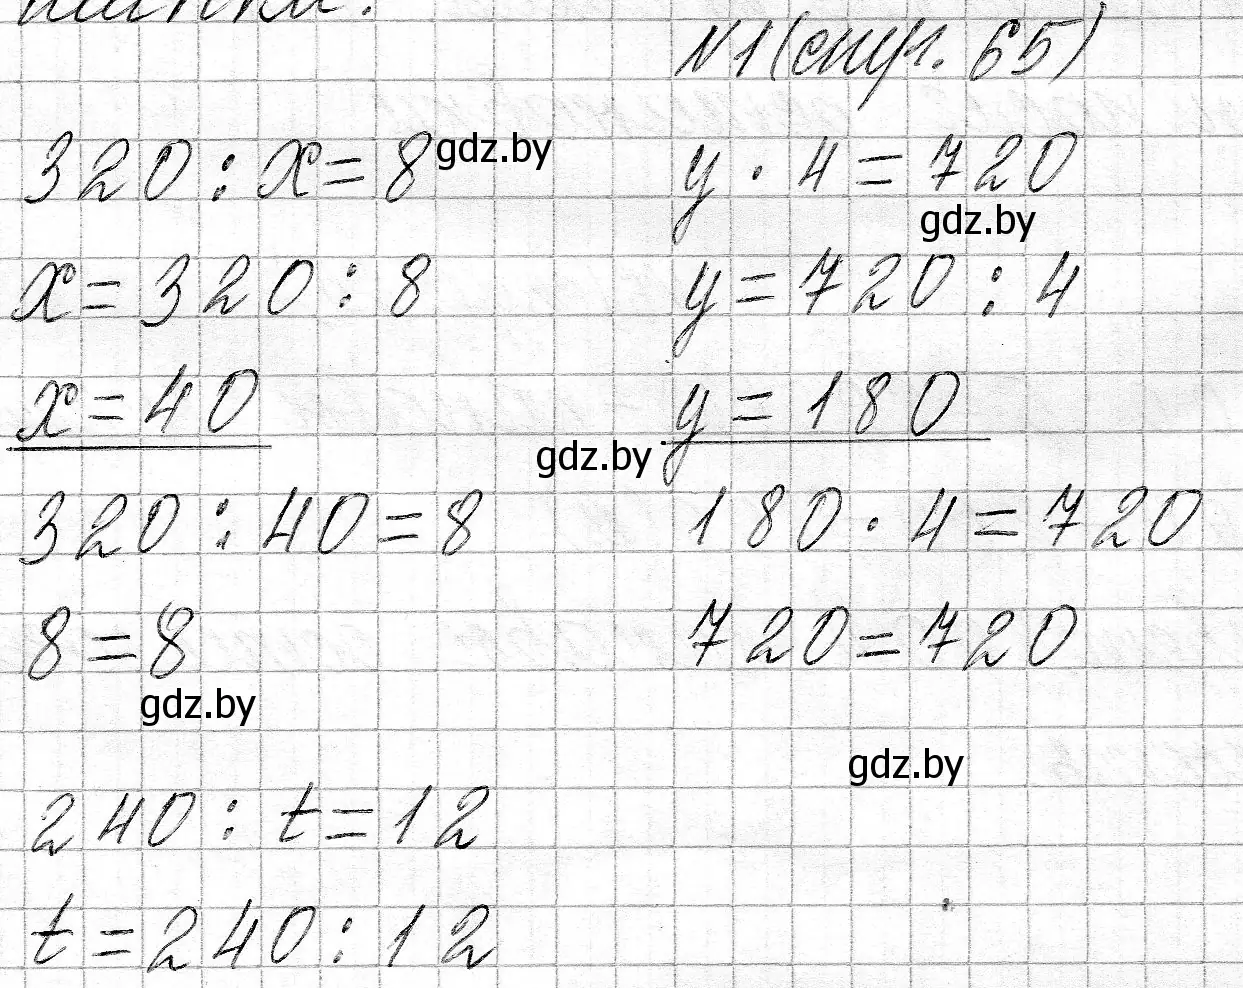 №1 (стр. 65)
320 : x = 8 gdz.by
y · 4 = 720
gdz.by
x = 320 : 8
y = 720 : 4
x = 40
y = 180
gdz.by
320 : 40 = 8
180 · 4 = 720
8 = 8
720 = 720
gdz.by
gdz.by
240 : t = 12
t = 240 : 12